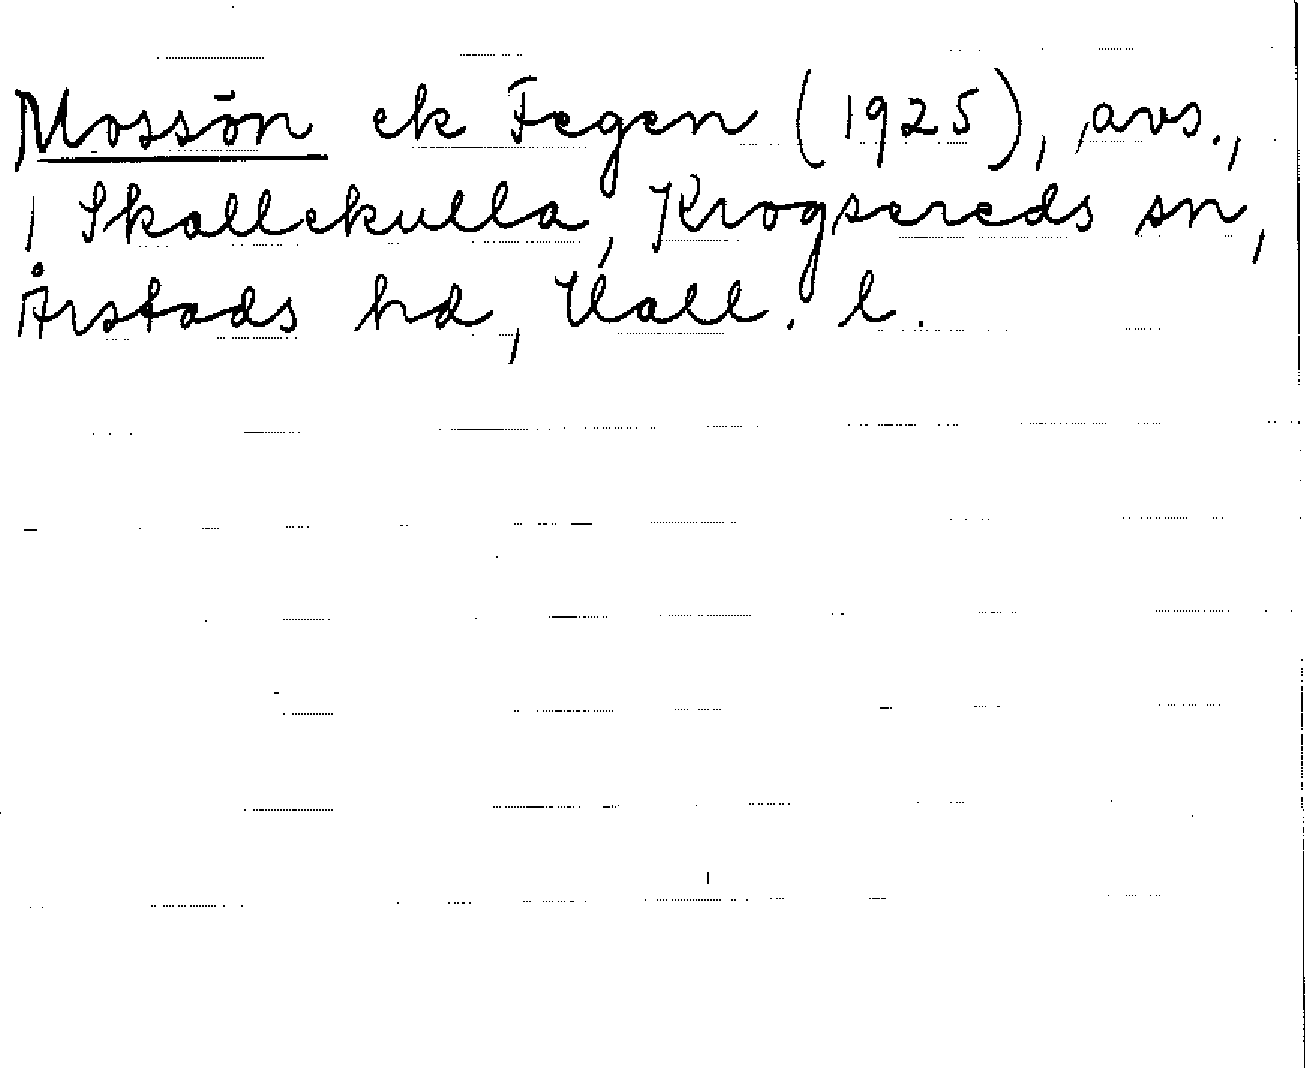 Mossön ek Fegen (1925), avs.,
i Skallekulla, Krogsereds sn,
Årstads hd, Hall. l.